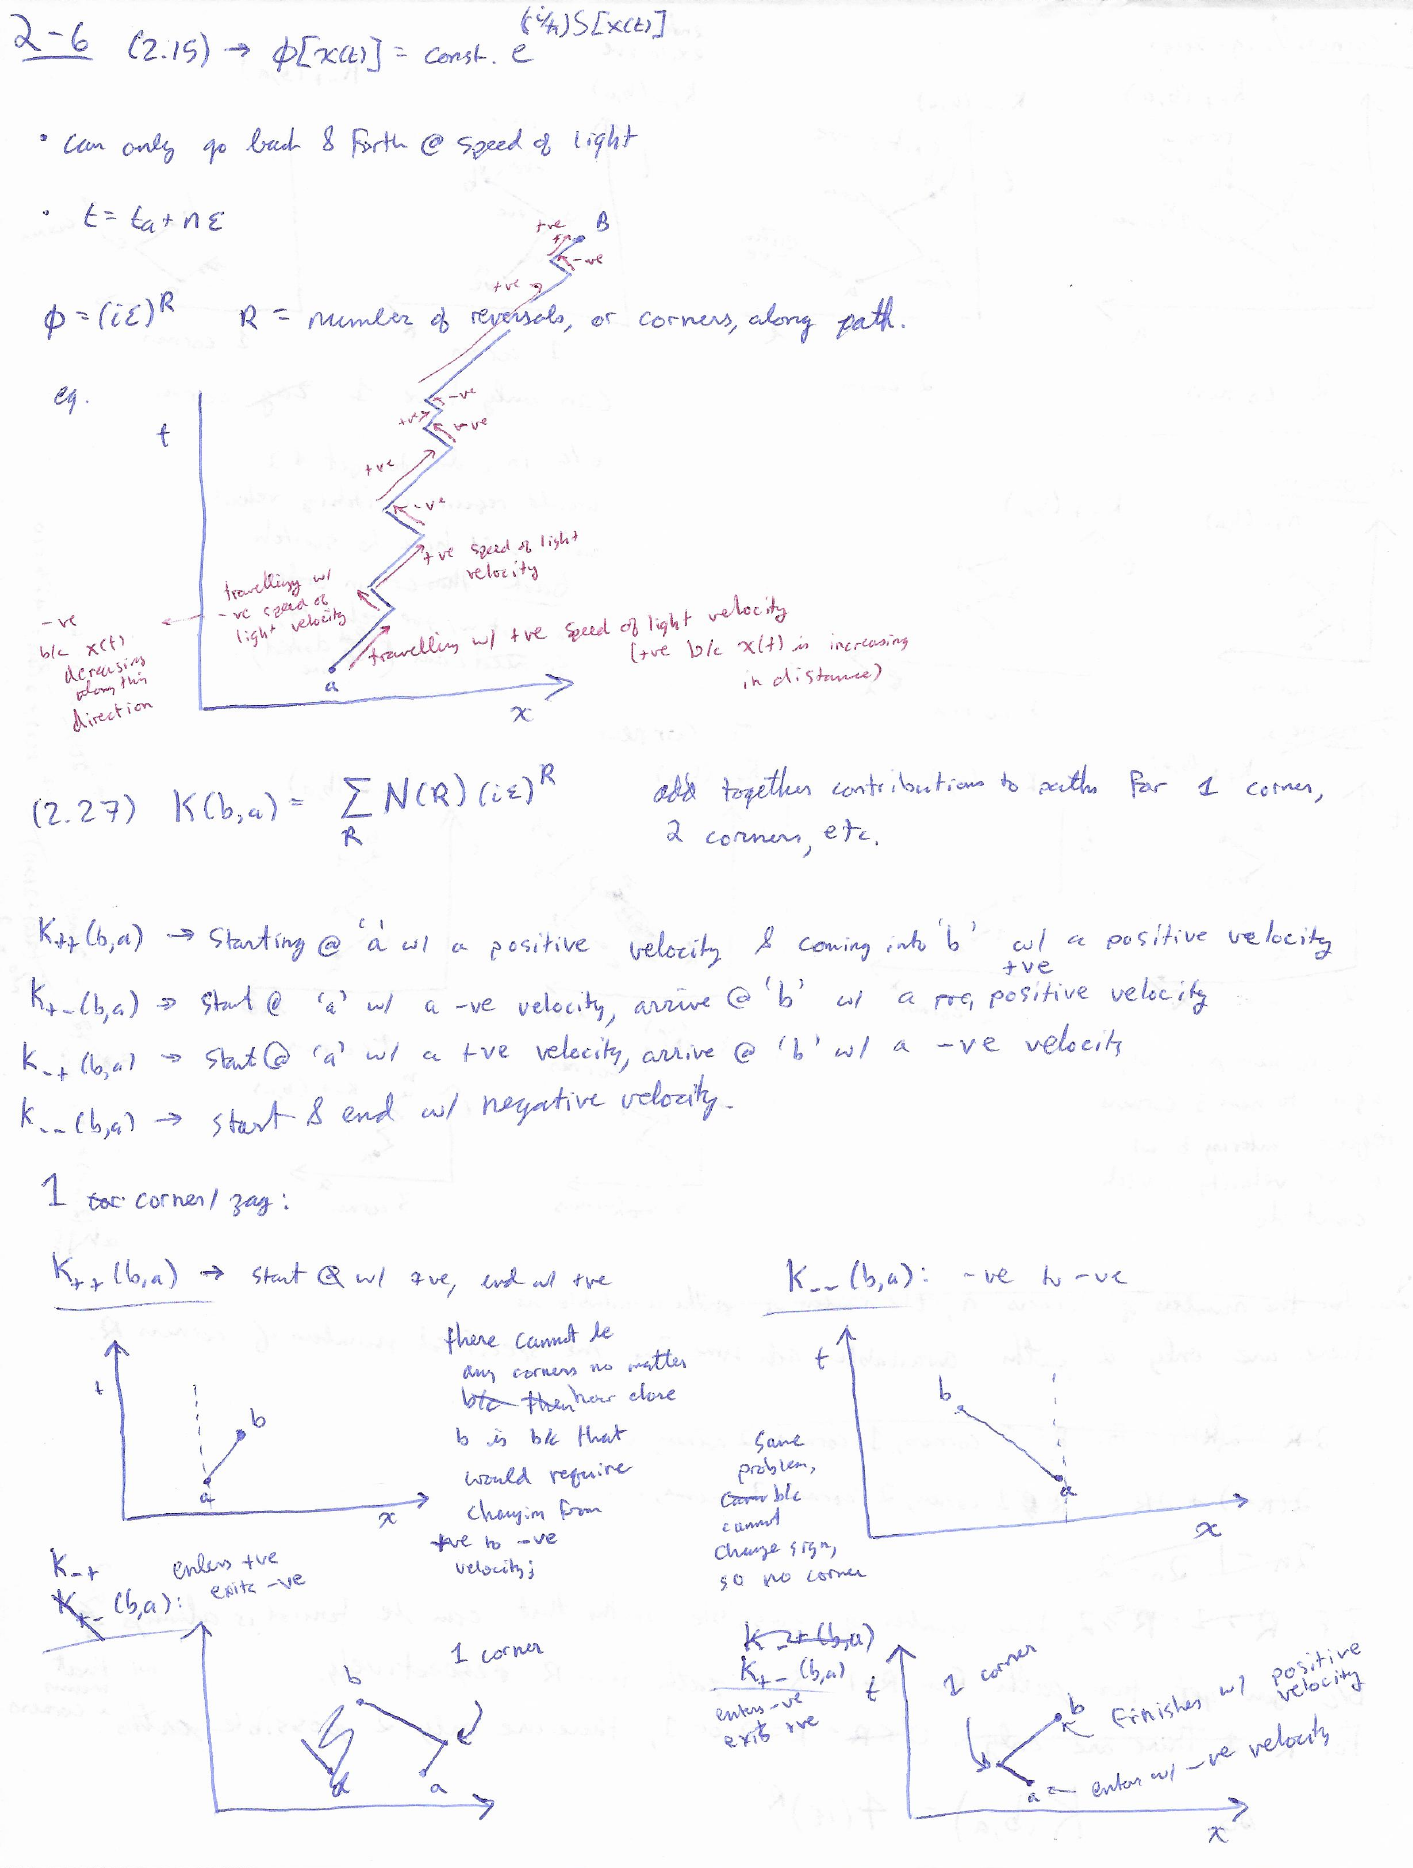 2-6 (2.15) → ϕ[x(t)] = const. e^(i/ħ)S[x(t)]
• can only go back & forth @ speed of light
• t = ta + nε
ϕ = (iε)^R R = number of reversals, or corners, along path.
eg.
t
B
+ve
+
-ve
+ve
-ve
+ve
-ve
+ve
-ve
+ve speed of light
velocity
travelling w/
-ve speed of
light velocity
-ve
b/c x(t)
decreasing
along this
direction
travelling w/ +ve speed of light velocity
(+ve b/c x(t) is increasing
in distance)
a
x
(2.27) K(b,a) = ∑ N(R) (iε)^R
R
add together contributions to paths for 1 corner,
2 corners, etc.
K++(b,a) → starting @ 'a' w/ a positive velocity & coming into 'b' w/ a positive velocity
+ve
K+-(b,a) → start @ 'a' w/ a -ve velocity, arrive @ 'b' w/ a pos, positive velocity
K-+(b,a) → start @ 'a' w/ a +ve velocity, arrive @ 'b' w/ a -ve velocity
K--(b,a) → start & end w/ negative velocity.
1 cor corner/zag:
K++(b,a) → start @ w/ +ve, end w/ +ve
t
b
a
x
there cannot be
any corners no matter
b/c then how close
b is b/c that
would require
changing from
+ve to -ve
velocity;
K--(b,a): -ve to -ve
t
b
a
x
same
problem,
b/c
cannot
change sign,
so no corner
K-+
K+-(b,a):
enters +ve
exits -ve
1 corner
b
a
a
K-+(b,a)
K+-(b,a)
enters -ve
exits +ve
t
1 corner
b
finishes w/ positive
velocity
a ← enters w/ -ve velocity
x